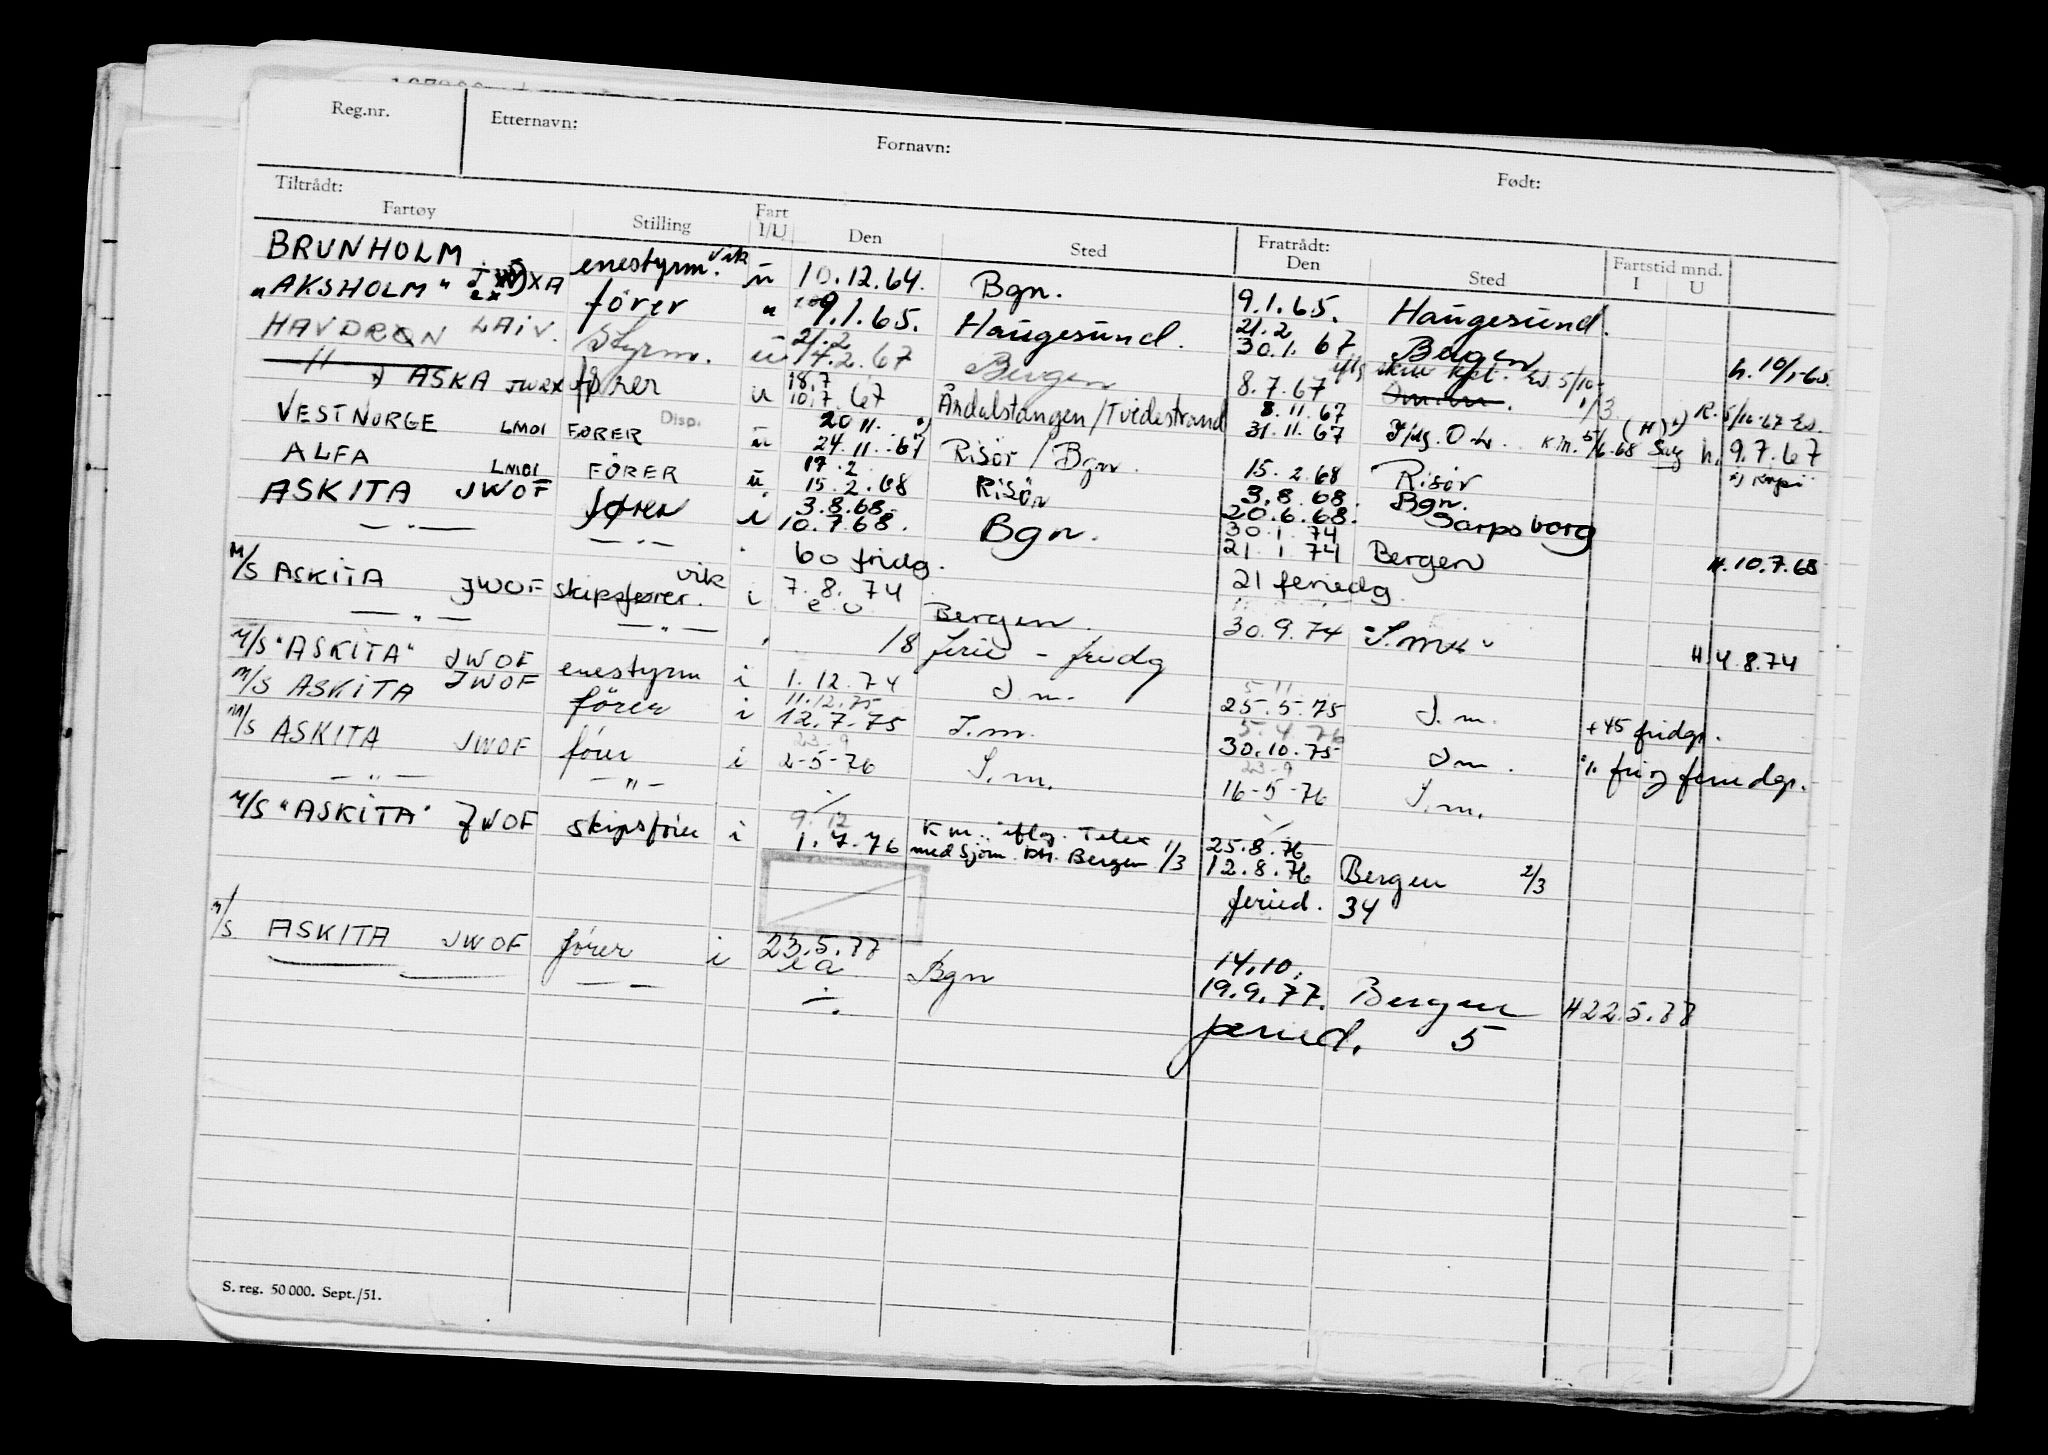 Reg.nr. Etternavn: Fornavn: Født:
Tiltrådt: Fratrådt: Fartstid mnd.
Fartøy Stilling Fart I/U Den Sted Den Sted I U
BRUNHOLM enestyrm. vik u 10.12.64. Bgn. 9.1.65. Haugesund.
"AKSHOLM" ex fører " 9.1.65. Haugesund. 21.2 30.1.67 Bergen h. 10/1-65.
HAVDRØN LAIV. Styrm. u 21.2 14.2.67 Bergen 8.7.67
" ASKA fører u 18.7 10.7.67 Åndalstangen/Tvedestrand 8.11.67 31.11.67 1/3 (H) R. 5/10-67 Ed.
VESTNORGE LMOI FØRER Disp. u 20 11. 24.11.67 Risør / Bgn. 15.2.68 Risør K.m. 5/6.68 h. 9.7.67
ALFA LMOI FØRER u 17.2 15.2.68 Risør 3.8.68. Bgn.
ASKITA JWOF fører i 3.8.68. 10.7.68. Bgn. 20.6.68. Sarpsborg
— " — — " — 60 fridg. 30.1.74 21.1.74 Bergen H. 10.7.68
M/S ASKITA JWOF skipsfører. vik i 7.8.74 Bergen. 21 feriedg.
— " — — " — 18 ferie - fridg 30.9.74 "S.m." H 4.8.74
M/S "ASKITA" JWOF enestyrm i 1.12.74 S m. 25.5.75 S. m. +45 fridgr.
M/S ASKITA JWOF fører i 11.12.75 12.7.75 S.m. 5.4.76 30.10.75 S m. % fri og feriedgr.
M/S ASKITA JWOF fører i 23-9 2-5-76 S.m. 23-9 16-5-76 S.m.
— " — — " —
M/S "ASKITA" JWOF skipsfører i 9.12 1.7.76 K m. iflg. Telex med Sjøm. Bergen 1/3 25.8.76 12.8.76 Bergen 2/3
feried. 34
M/S ASKITA JWOF fører i 23.5.77 Bgn 14.10. 19.9.77. Bergen H 22.5.77
feried. 5
S. reg. 50 000. Sept./51.